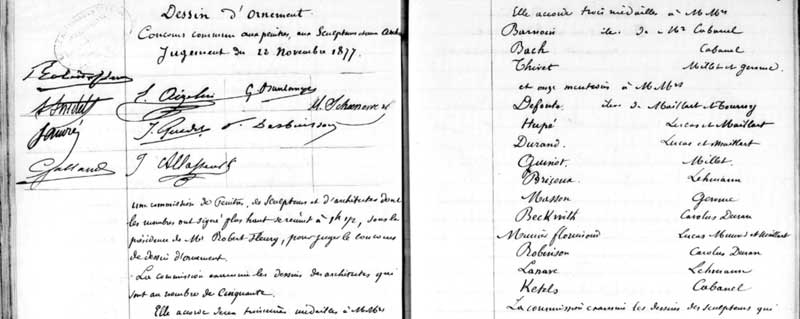 Dessin d'Ornement.
Concours commun aux peintres, aux Sculpteurs et aux
Jugement du 22 Novembre 1877.
G Boulanger
J. Aizelin
Galland
une commission de Peintres, de sculpteurs et d'architectes dont
les membres ont signé plus haut se réunit à 1h 1/2, sous la
présidence de Mr Robert Fleury, pour juger le concours
de dessin d'ornement.
La commission examine les dessins des architectes qui
sont au nombre de Cinquante.
Elle accorde deux troisièmes médailles à M Mrs
Elle accorde trois médailles à M Mrs
élève de Mr Cabanel
Bach Cabanel
Thivet Millet et Gerome.
et onze mentions à M Mrs
élève de Maillart et
Hupé Lucas et Maillart
Durand Lucas et Maillart
Guinot Millet
Lehmann
Masson Gerome
Beckwith Carolus Duran
Lucas et Maillart
Robinson Carolus Duran
Lanave Lehmann
Ketels Cabanel
La commission examine les dessins des sculpteurs qui